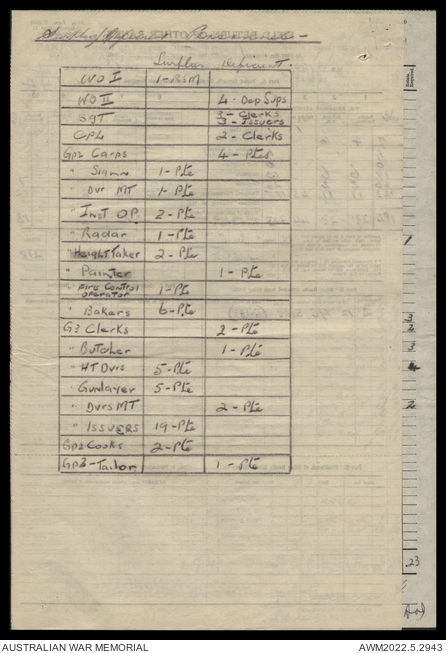 Surplus Deficient.
WO I 1-RSM
WO II 4-Dep Sups
SGT 3-Clerks
3-Issuers
CPL 2-Clerks
Gp2 Carps 4-Ptes
" 1-Pte
" Dvr MT 1-Pte
" Inst O.P. 2-Pte
" Radar 1-Pte
" Height Taker 2-Pte
" Painter 1-Pte
" Fire Control
Operator 1-Pte
" Bakers 6-Pte
G3 Clerks 2-Pte
" Butcher 1-Pte
" HT Dvrs 5-Pte
" Gunlayer 5-Pte
" Dvrs MT 2-Pte
" ISSUERS 19-Pte
Gp2 Cooks 2-Pte
Gp3-Tailor 1-Pte
1
3
2
3
4
2
23
AUSTRALIAN WAR MEMORIAL
AWM2022.5.2943